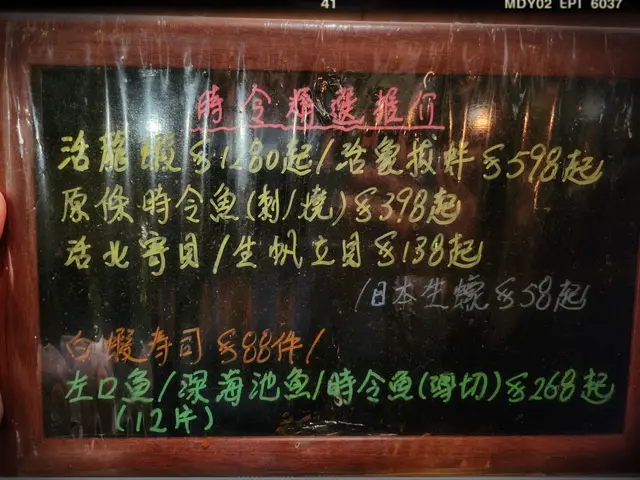 41 MDY02 EPI 6037
時令精選推介
活龍蝦$1280起/活愛拔蚌$598起
原條時令魚(刺/燒)$398起
活北寄貝/生帆立貝$138起
/日本生蠔$58起
白蝦寿司$88件/
左口魚/深海池魚/時令魚(薄切)$268起
(12片)